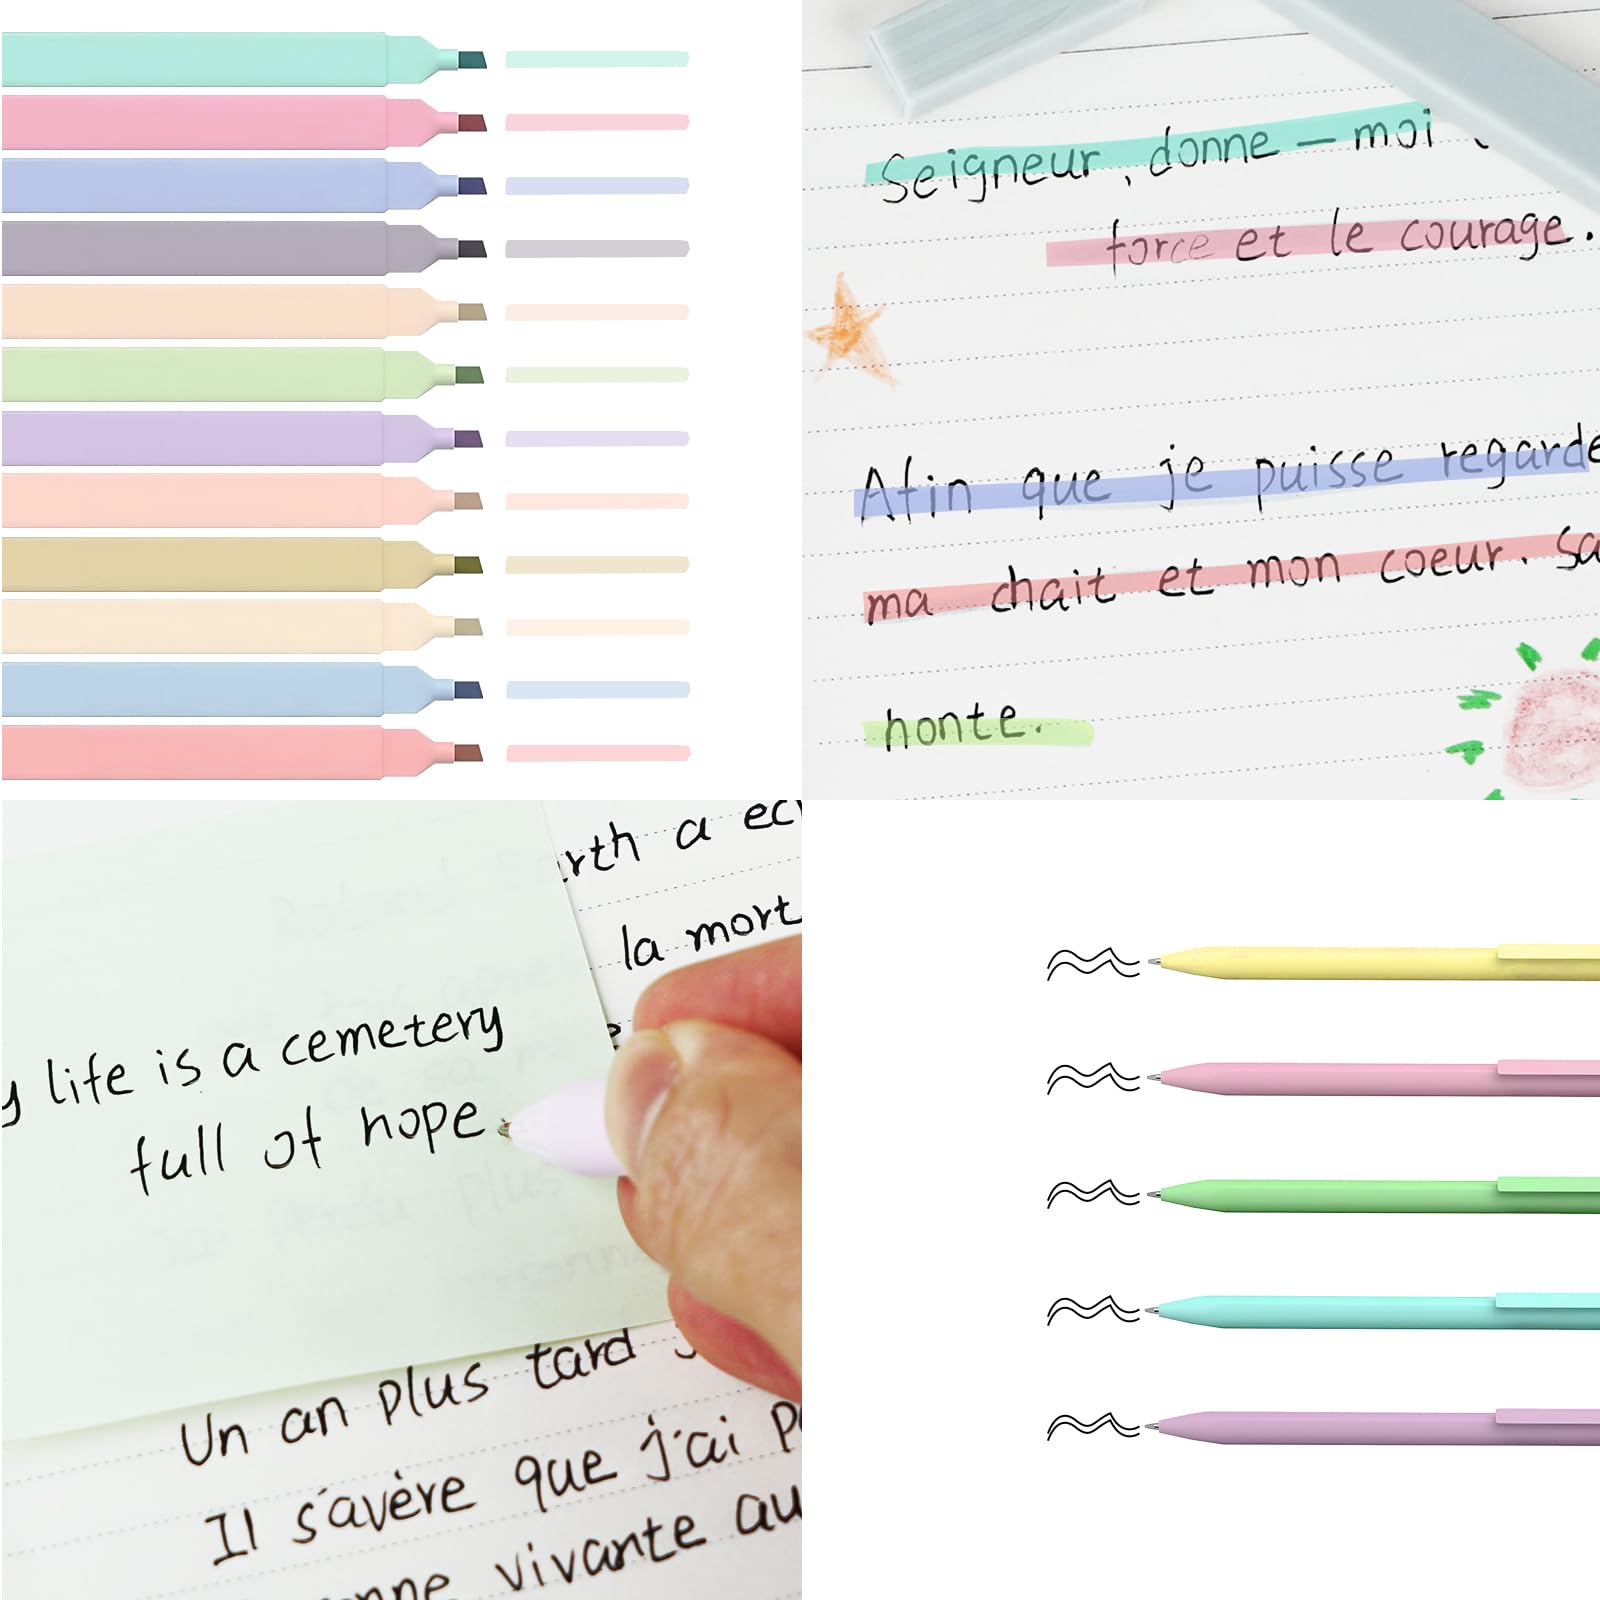 Seigneur, donne-moi
force et le courage.
Afin que je puisse regarde
ma chait et mon coeur. Sa
honte.
rth a ec
la mort
y life is a cemetery
full of hope
Roland
Un an plus tard
Il s'avère que j'ai p
onne vivante au